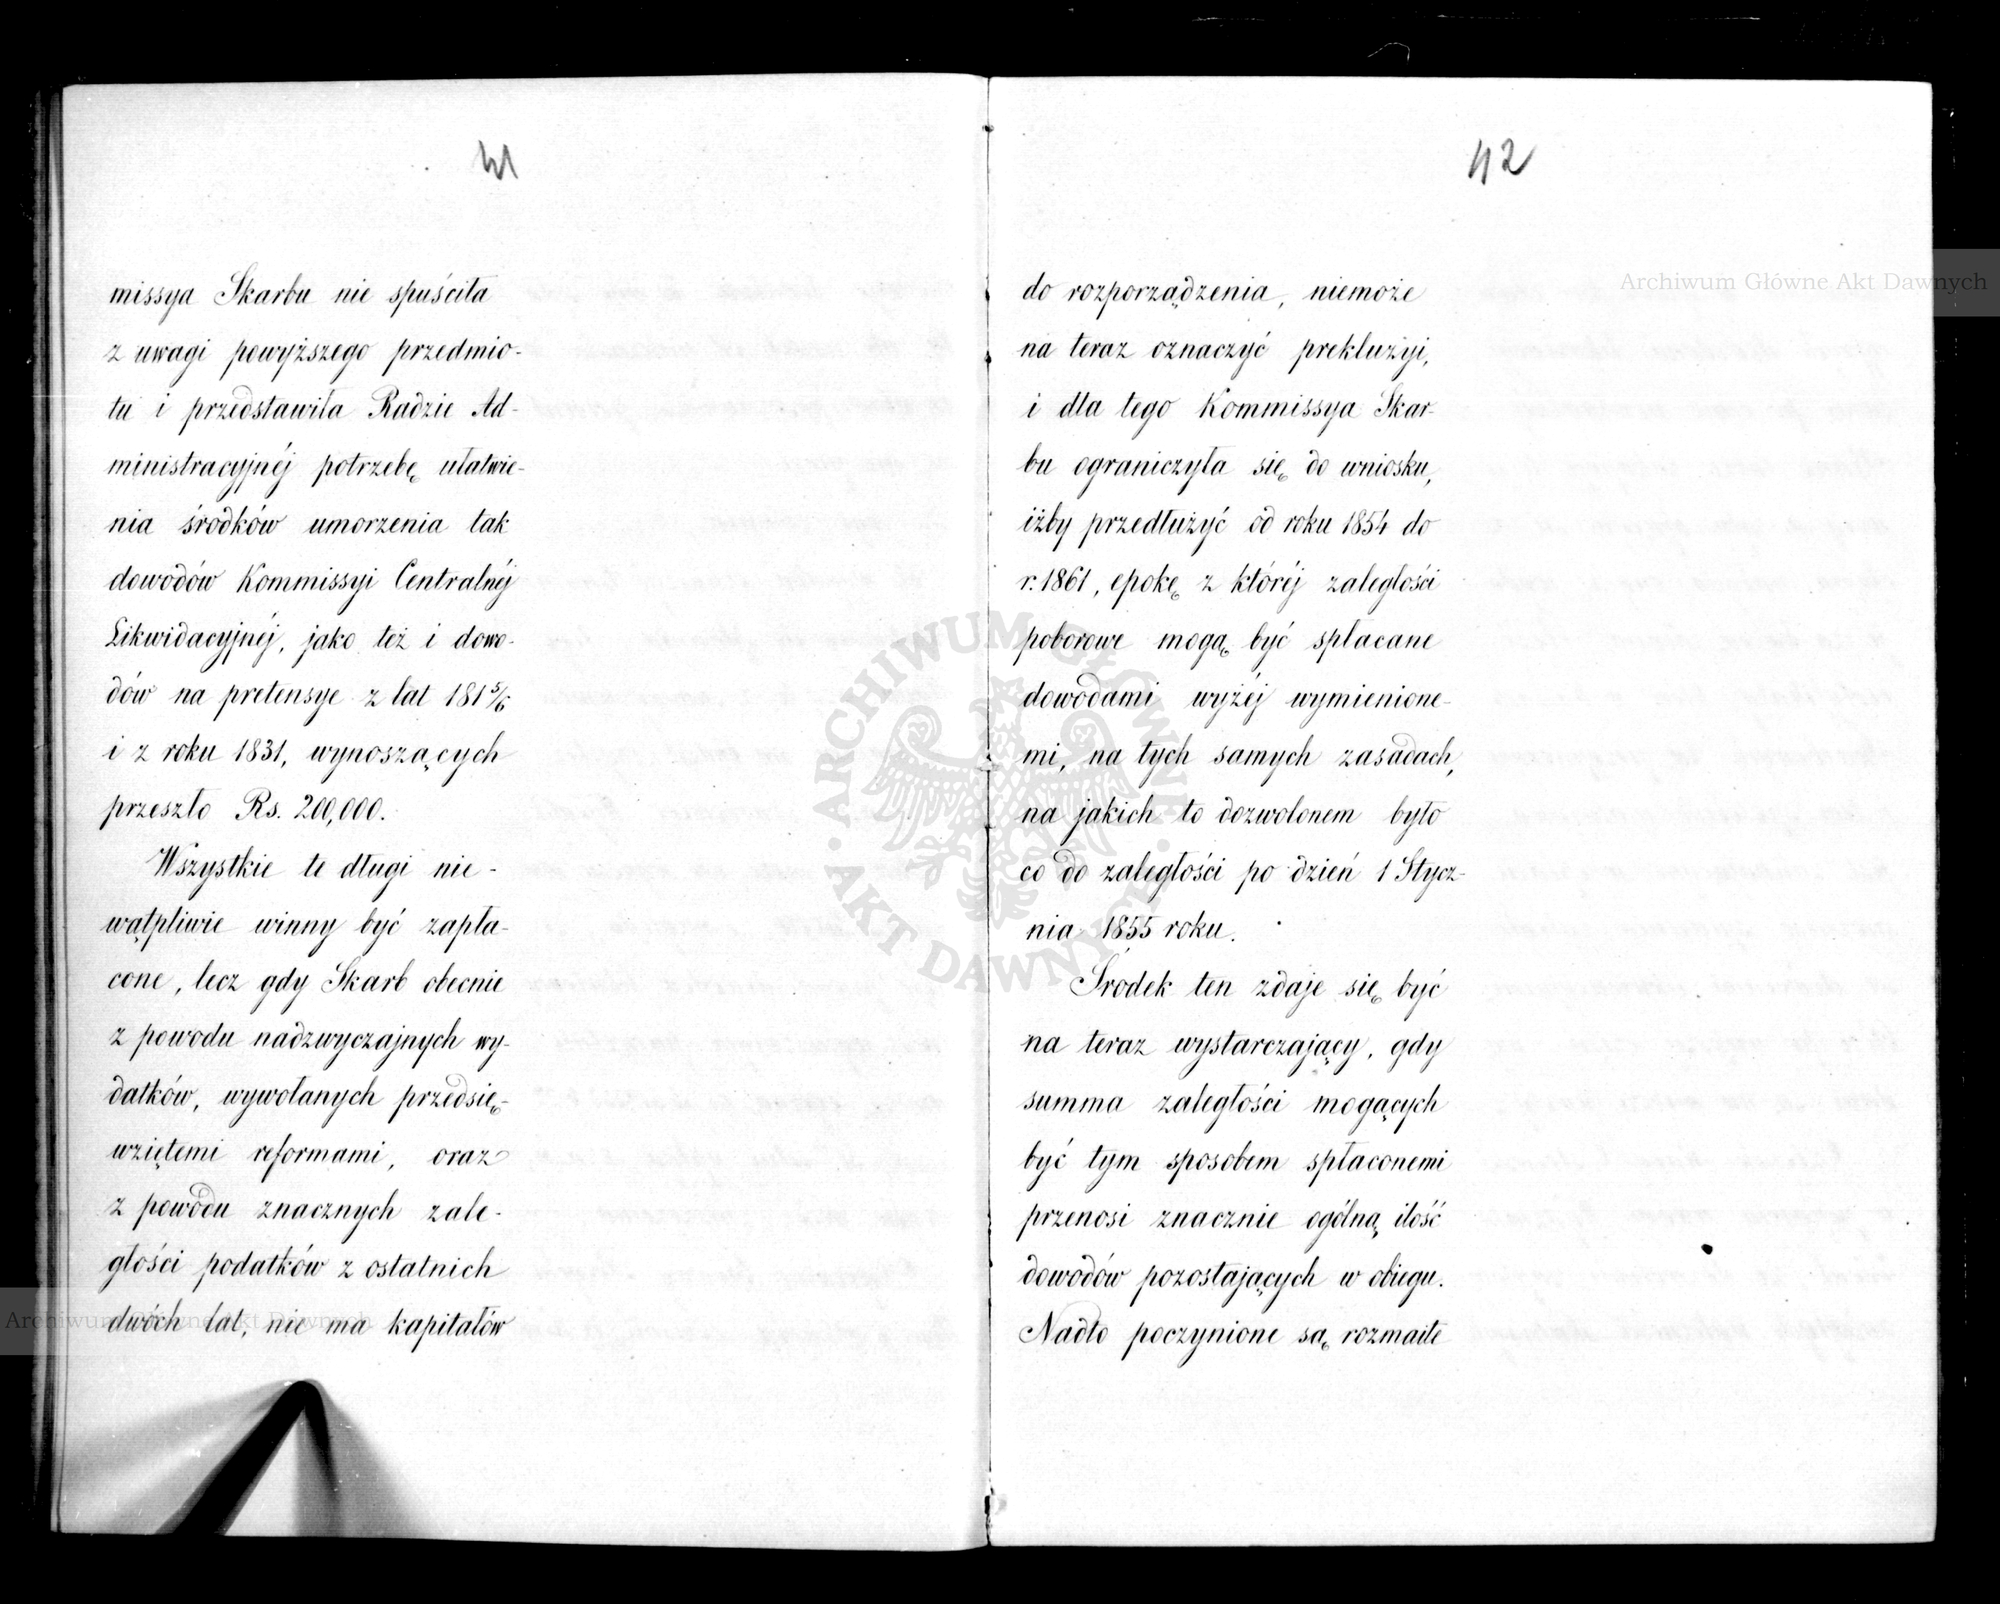 41
missya Skarbu nie spuściła
z uwagi powyższego przedmio-
tu i przedstawiła Radzie Ad-
ministracyjnéj potrzebę ułatwie-
nia środków umorzenia tak
dowodów Kommissyi Centralnéj
Likwidacyjnéj, jako też i dowo-
dów na pretensye z lat 181 5/6
i z roku 1831, wynoszących
przeszło Rs. 200,000.
Wszystkie te długi nie-
wątpliwie winny być zapła-
cone, lecz gdy Skarb obecnie
z powodu nadzwyczajnych wy-
datków, wywołanych przedsię-
wziętemi reformami, oraz
z powodu znacznych zale-
głości podatków z ostatnich
dwóch lat, nie ma kapitałów
42
do rozporządzenia, niemoże
na teraz oznaczyć prekluzyi,
i dla tego Kommissya Skar-
bu ograniczyła się do wniosku,
iżby przedłużyć od roku 1854 do
r. 1861, epokę z któréj zaległości
poborowe mogą być spłacane
dowodami wyżéj wymienione-
mi, na tych samych zasadach,
na jakich to dozwolonem było
co do zaległości po dzień 1 Stycz-
nia 1855 roku.
Środek ten zdaje się być
na teraz wystarczający, gdy
summa zaległości mogących
być tym sposobem spłaconemi
przenosi znacznie ogólną ilość
dowodów pozostających w obiegu.
Nadto poczynione są rozmaite
Archiwum Główne Akt Dawnych
Archiwum Główne Akt Dawnych
ARCHIWUM GŁÓWNE AKT DAWNYCH